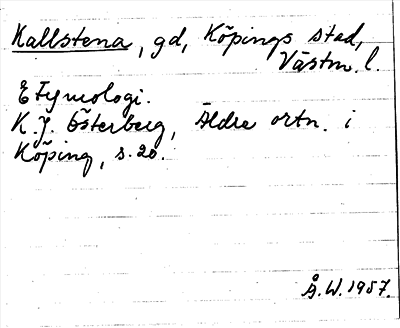 Kallstena, gd, Köpings stad,
Västm. l.
Etymologi.
K.J. Österberg, Äldre ortn. i
Köping, s. 20.
Å.W. 1957.